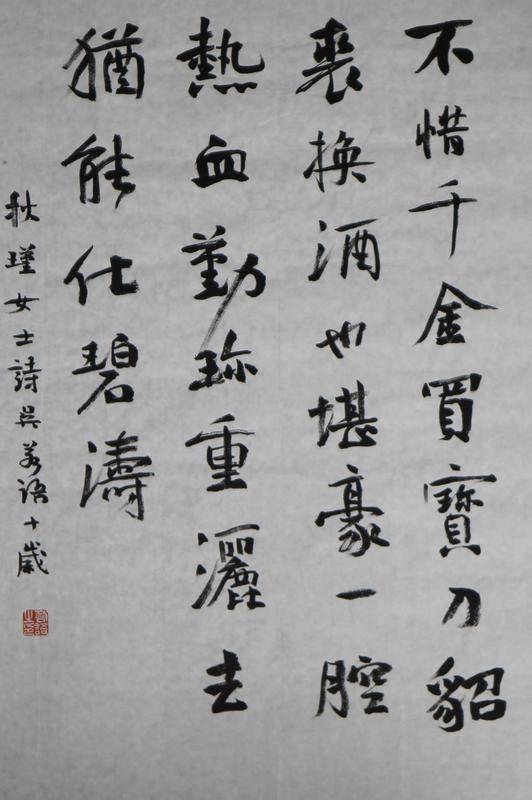 不惜千金買寶刀貂
裘換酒也堪豪一腔
熱血勤珍重灑去
猶能仕碧濤
秋瑾女士詩吳若語十歲